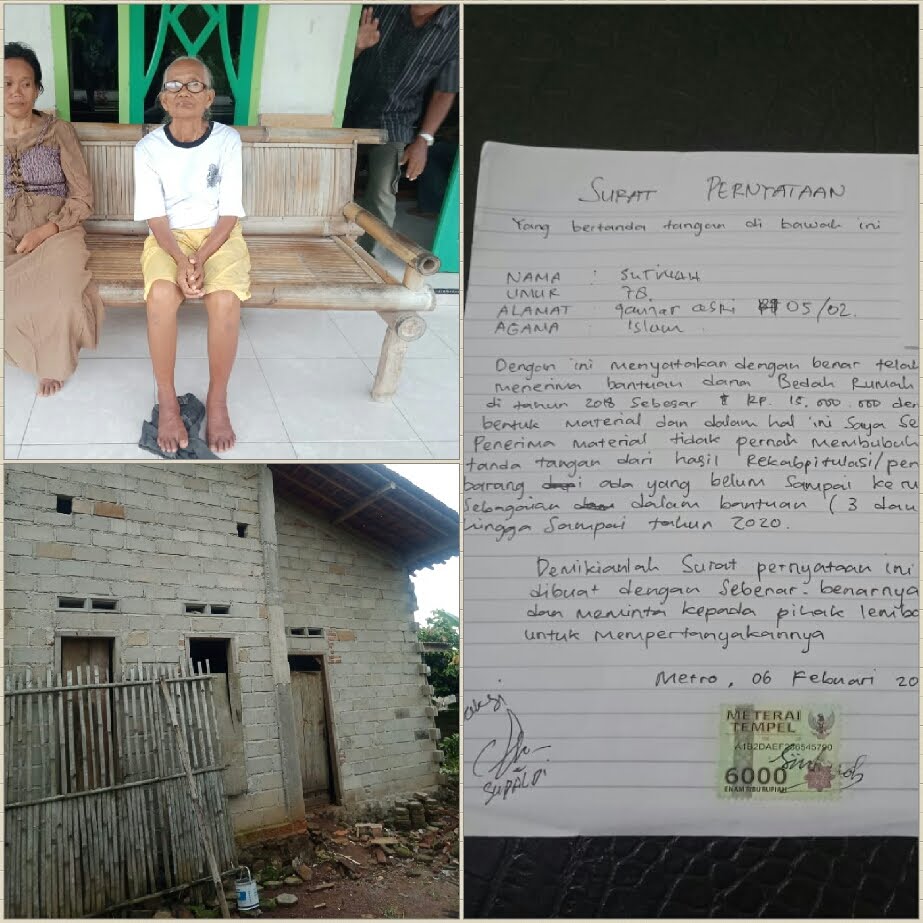 SURAT PERNYATAAN
Yang bertanda tangan di bawah ini
NAMA : Sutinah
UMUR : 78.
ALAMAT : ganjar asri 05/02.
AGAMA : Islam
Dengan ini menyatakan dengan benar tela
menerima bantuan dana Bedah Rumah
di tahun 2018 Sebesar RP. 15.000.000 den
bentuk material dan dalam hal ini Saya Se
Penerima material tidak pernah Membubuh
tanda tangan dari hasil Rekabpitulasi/pen
barang ada yang belum Sampai ke ru
Sebagaian dalam bantuan ( 3 dau
hingga Sampai tahun 2020.
Demikianlah Surat pernyataan ini
dibuat dengan Sebenar-benarnya
dan meminta kepada pihak lemba
untuk mempertanyakannya
Metro, 06 Febuari 20
METERAI
TEMPEL
6000
ENAM RIBU RUPIAH
SUPALDI